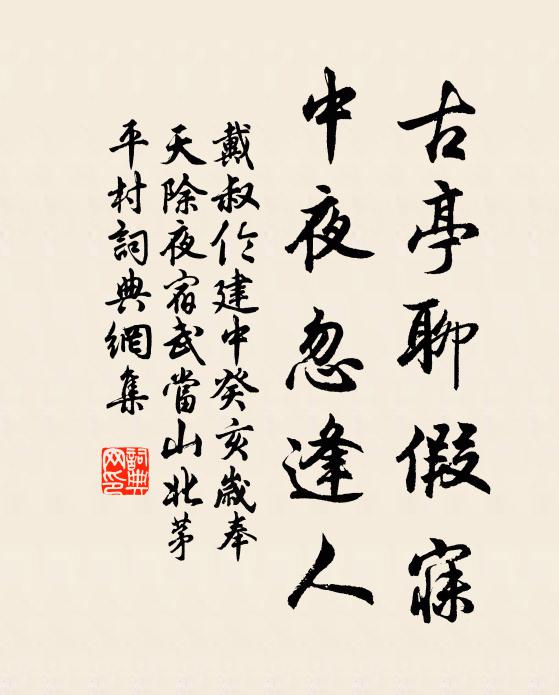 古亭聊假寐
中夜忽逢人
戴叔伦建中癸亥歲奉
天除夜宿武當山北茅
平村詞典網集
詞典网印